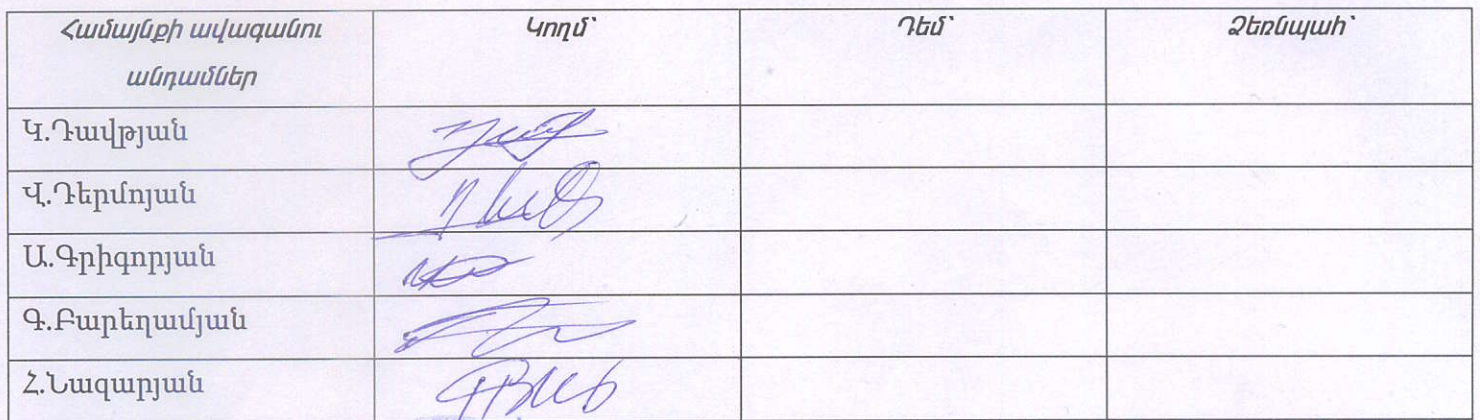 Համայնքի ավագանու անդամներ Կողմ՝ Դեմ՝ Ձեռնպահ՝
Կ.Դավթյան
Վ.Դերմոյան
Ա.Գրիգորյան
Գ.Բարեղամյան
Հ.Նազարյան